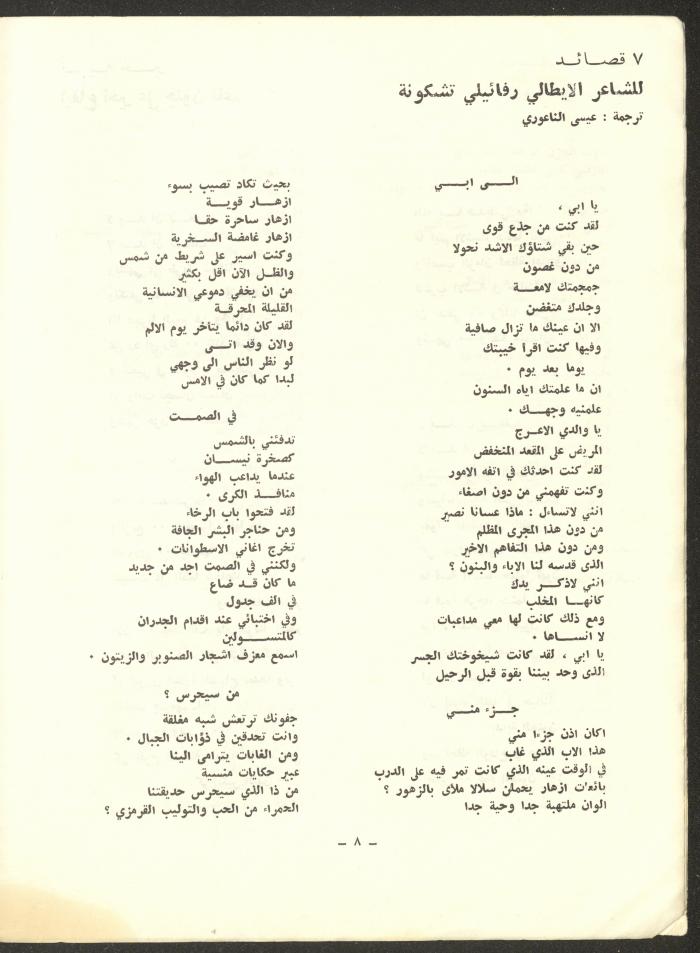 ٧ قصائد
للشاعر الايطالي رفائيلي تشكونة
ترجمة : عيسى الناعوري
الى ابي
يا ابي ،
لقد كنت من جذع قوى
حين بقي شتاؤك الاشد نحولا
من دون غصون
جمجمتك لامعة
وجلدك متغضن
الا ان عينك ما تزال صافية
وفيها كنت اقرأ خيبتك
يوما بعد يوم ٠
ان ما علمتك اياه السنون
علمنيه وجهك ٠
يا والدي الاعرج
المريض على المقعد المنخفض
لقد كنت احدثك في اتفه الامور
وكنت تفهمني من دون اصغاء
انني لاتساءل : ماذا عسانا نصير
من دون هذا المجرى المظلم
ومن دون هذا التفاهم الاخير
الذى قدسه لنا الاباء والبنون ؟
انني لاذكر يدك
كانها المخلب
ومع ذلك كانت لها معي مداعبات
لا انساها ٠
يا ابي ، لقد كانت شيخوختك الجسر
الذى وحد بيننا بقوة قبل الرحيل
جزء مني
اكان اذن جزءا مني
هذا الاب الذي غاب
في الوقت عينه الذي كانت تمر فيه على الدرب
بائعات ازهار يحملن سلالا ملأى بالزهور ؟
الوان ملتهبة جدا وحية جدا
بحيث تكاد تصيب بسوء
ازهار قوية
ازهار ساحرة حقا
ازهار غامضة السخرية
وكنت اسير على شريط من شمس
والظل الآن اقل بكثير
من ان يخفي دموعي الانسانية
القليلة المحرقة
لقد كان دائما يتاخر يوم الالم
والان وقد اتى
لو نظر الناس الى وجهي
لبدا كما كان في الامس
في الصمت
تدفئني بالشمس
كصخرة نيسان
عندما يداعب الهواء
منافذ الكرى ٠
لقد فتحوا باب الرخاء
ومن حناجر البشر الجافة
تخرج اغاني الاسطوانات ٠
ولكنني في الصمت اجد من جديد
ما كان قد ضاع
في الف جدول
وفي اختبائي عند اقدام الجدران
كالمتسولين
اسمع معزف اشجار الصنوبر والزيتون ٠
من سيحرس ؟
جفونك ترتعش شبه مغلقة
وانت تحدقين في ذؤابات الجبال ٠
ومن الغابات يترامى الينا
عبير حكايات منسية
من ذا الذي سيحرس حديقتنا
الحمراء من الحب والتوليب القرمزي ؟
ـ ٨ ـ